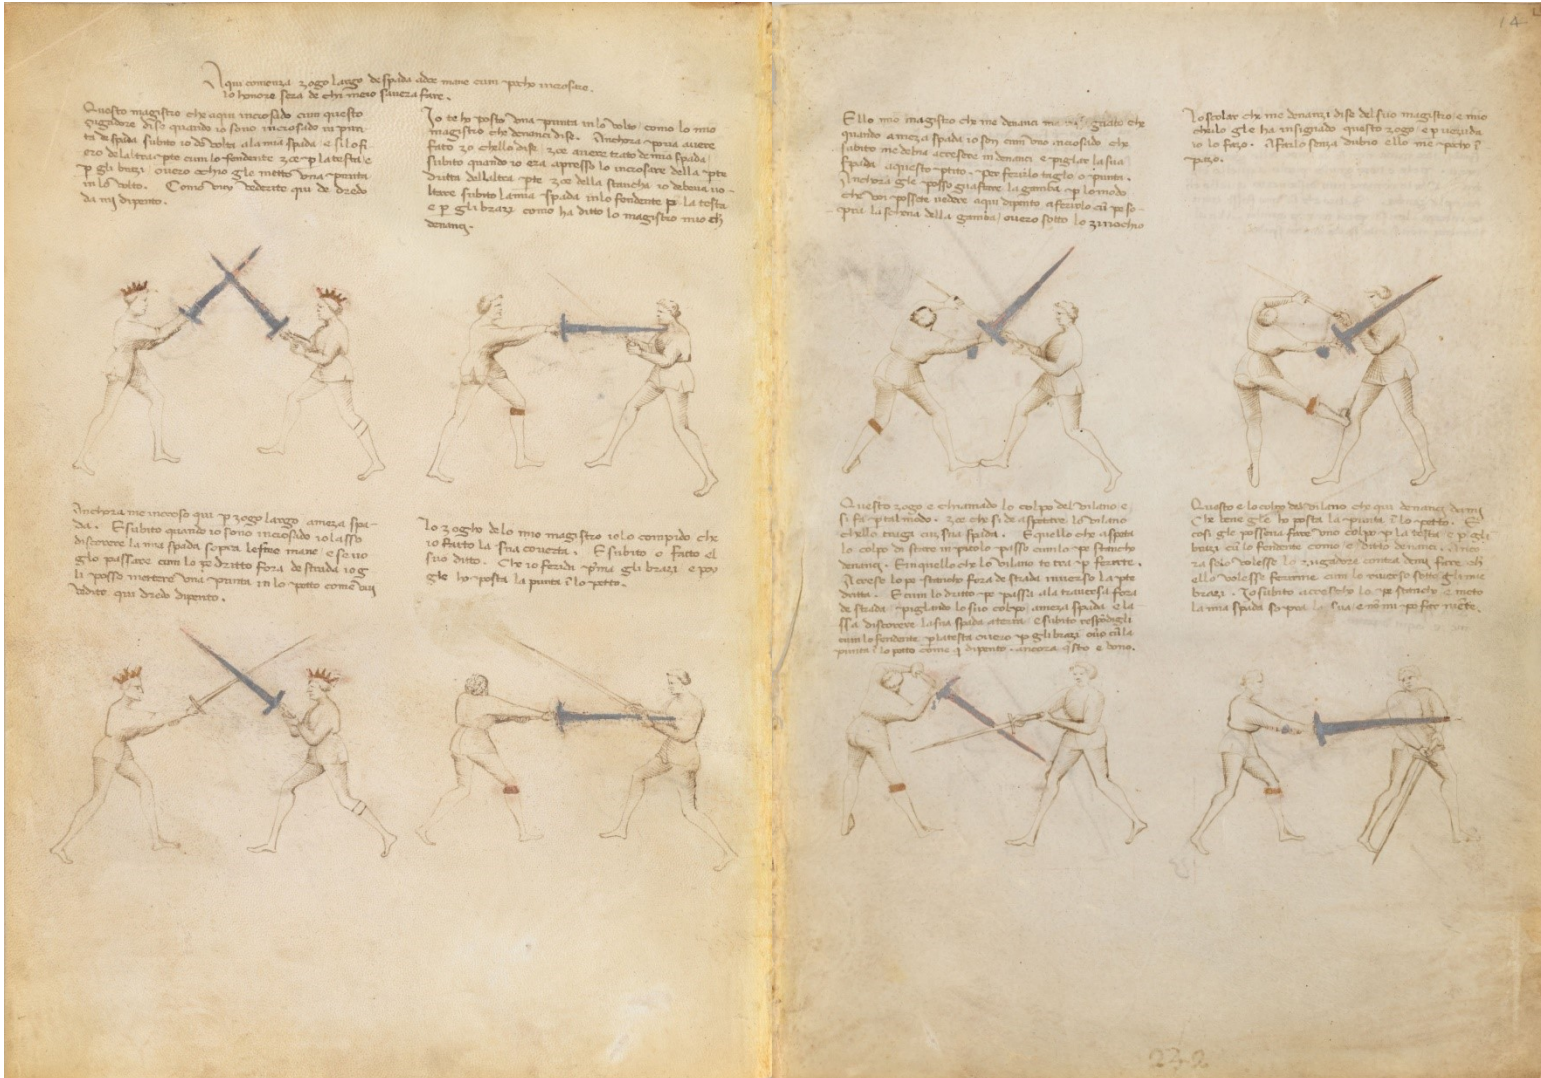 Aqui comenza zogo largo de spada adoe mane cum pocho incrosare.
lo honore sera de chi meio savera fare.
Questo magistro che aqui incrosado cum questo
zugadore dise quando io sono incrosado in pun
ta de spada subito io do volta ala mia spada e si lo fi
ero de laltra pte cum lo fendente zoe p la testa e
p gli brazi overo ochio gle metto una punta
in lo volto. Como vuy vederite qui de dredo
da mi dipento.
Io te ho posto una punta in lo volto como lo mio
magistro che denanci dise. Anchora poria avere
fato zo chello dise zoe avere trato de mia spada
subito quando io era apresso lo incrosare della pte
dritta dellaltra pte zoe della stancha io deveva vo
ltare subito la mia spada in lo fendente p la testa
e p gli brazi como ha ditto lo magistro mio ch
denanzi.
Anchora me incroso qui p zogo largo ameza spa
da. E subito quando io sono incrosado io lasso
discorere la mia spada sopra le soe mane e se vo
glo passare cum lo pe dritto fora de strada io g
li posso mettere una punta in lo petto como qui
vedite qui dredo dipento.
Lo zogho de lo mio magistro io lo compido che
io fatto la sua coverta. E subito o fatto el
suo ditto. Che io feridi pma gli brazi e poy
gle ho posta la punta i lo petto.
14
Ello mio magistro che me denanci ma insignato che
quando ameza spada io son cum uno incrosado che
subito me deba acresere in denanci e piglar la sua
spada a questo ptito. Per ferirlo taglo o punta.
Anchora gle posso guastare la gamba p lo modo
che voi possete vedere aqui dipento a ferirlo cu pe so
pra la schena della gamba overo sotto lo zinochio
Lo scolar che me denanzi dise del suo magistro e mio
chello gle ha insignado questo zogo e p vezuda
io lo fazo. A farlo senza dubio ello me pocho i
pazo.
Questo zogo e chiamado lo colpo del vilano e
si fa p tal modo. zoe che si de aspetare lo vilano
chello traga cu sua spada. E quello che aspeta
lo colpo di stare in picolo passo cum lo pe stancho
denanzi. E in quello che lo vilano te tra p ferirte.
Acreso lo pe stancho fora de strada inverso la pte
dritta. E cum lo dritto pe passa ala traversa fora
de strada piglando lo suo colpo ameza spada e la
ssa discorere la sua spada a terra e subito respodigli
cum lo fendente p la testa overo p gli brazi ovo cu la
punta i lo petto come q dipento. ancora qsto e bono.
Questo e lo colpo del vilano che qui denanci da mi
Che bene gle ho posta la punta i lo petto. E
cosi gle posseva fare uno colpo p la testa e p gli
brazi cu lo fendente como e ditto denanci. Anco
ra selo volesse lo zugadore contra de mi fare ch
ello volesse ferirme cum lo riverso sotto gli mie
brazi. Io subito acresco lo pe stanco e meto
la mia spada sopra la sua e no mi po far niete.